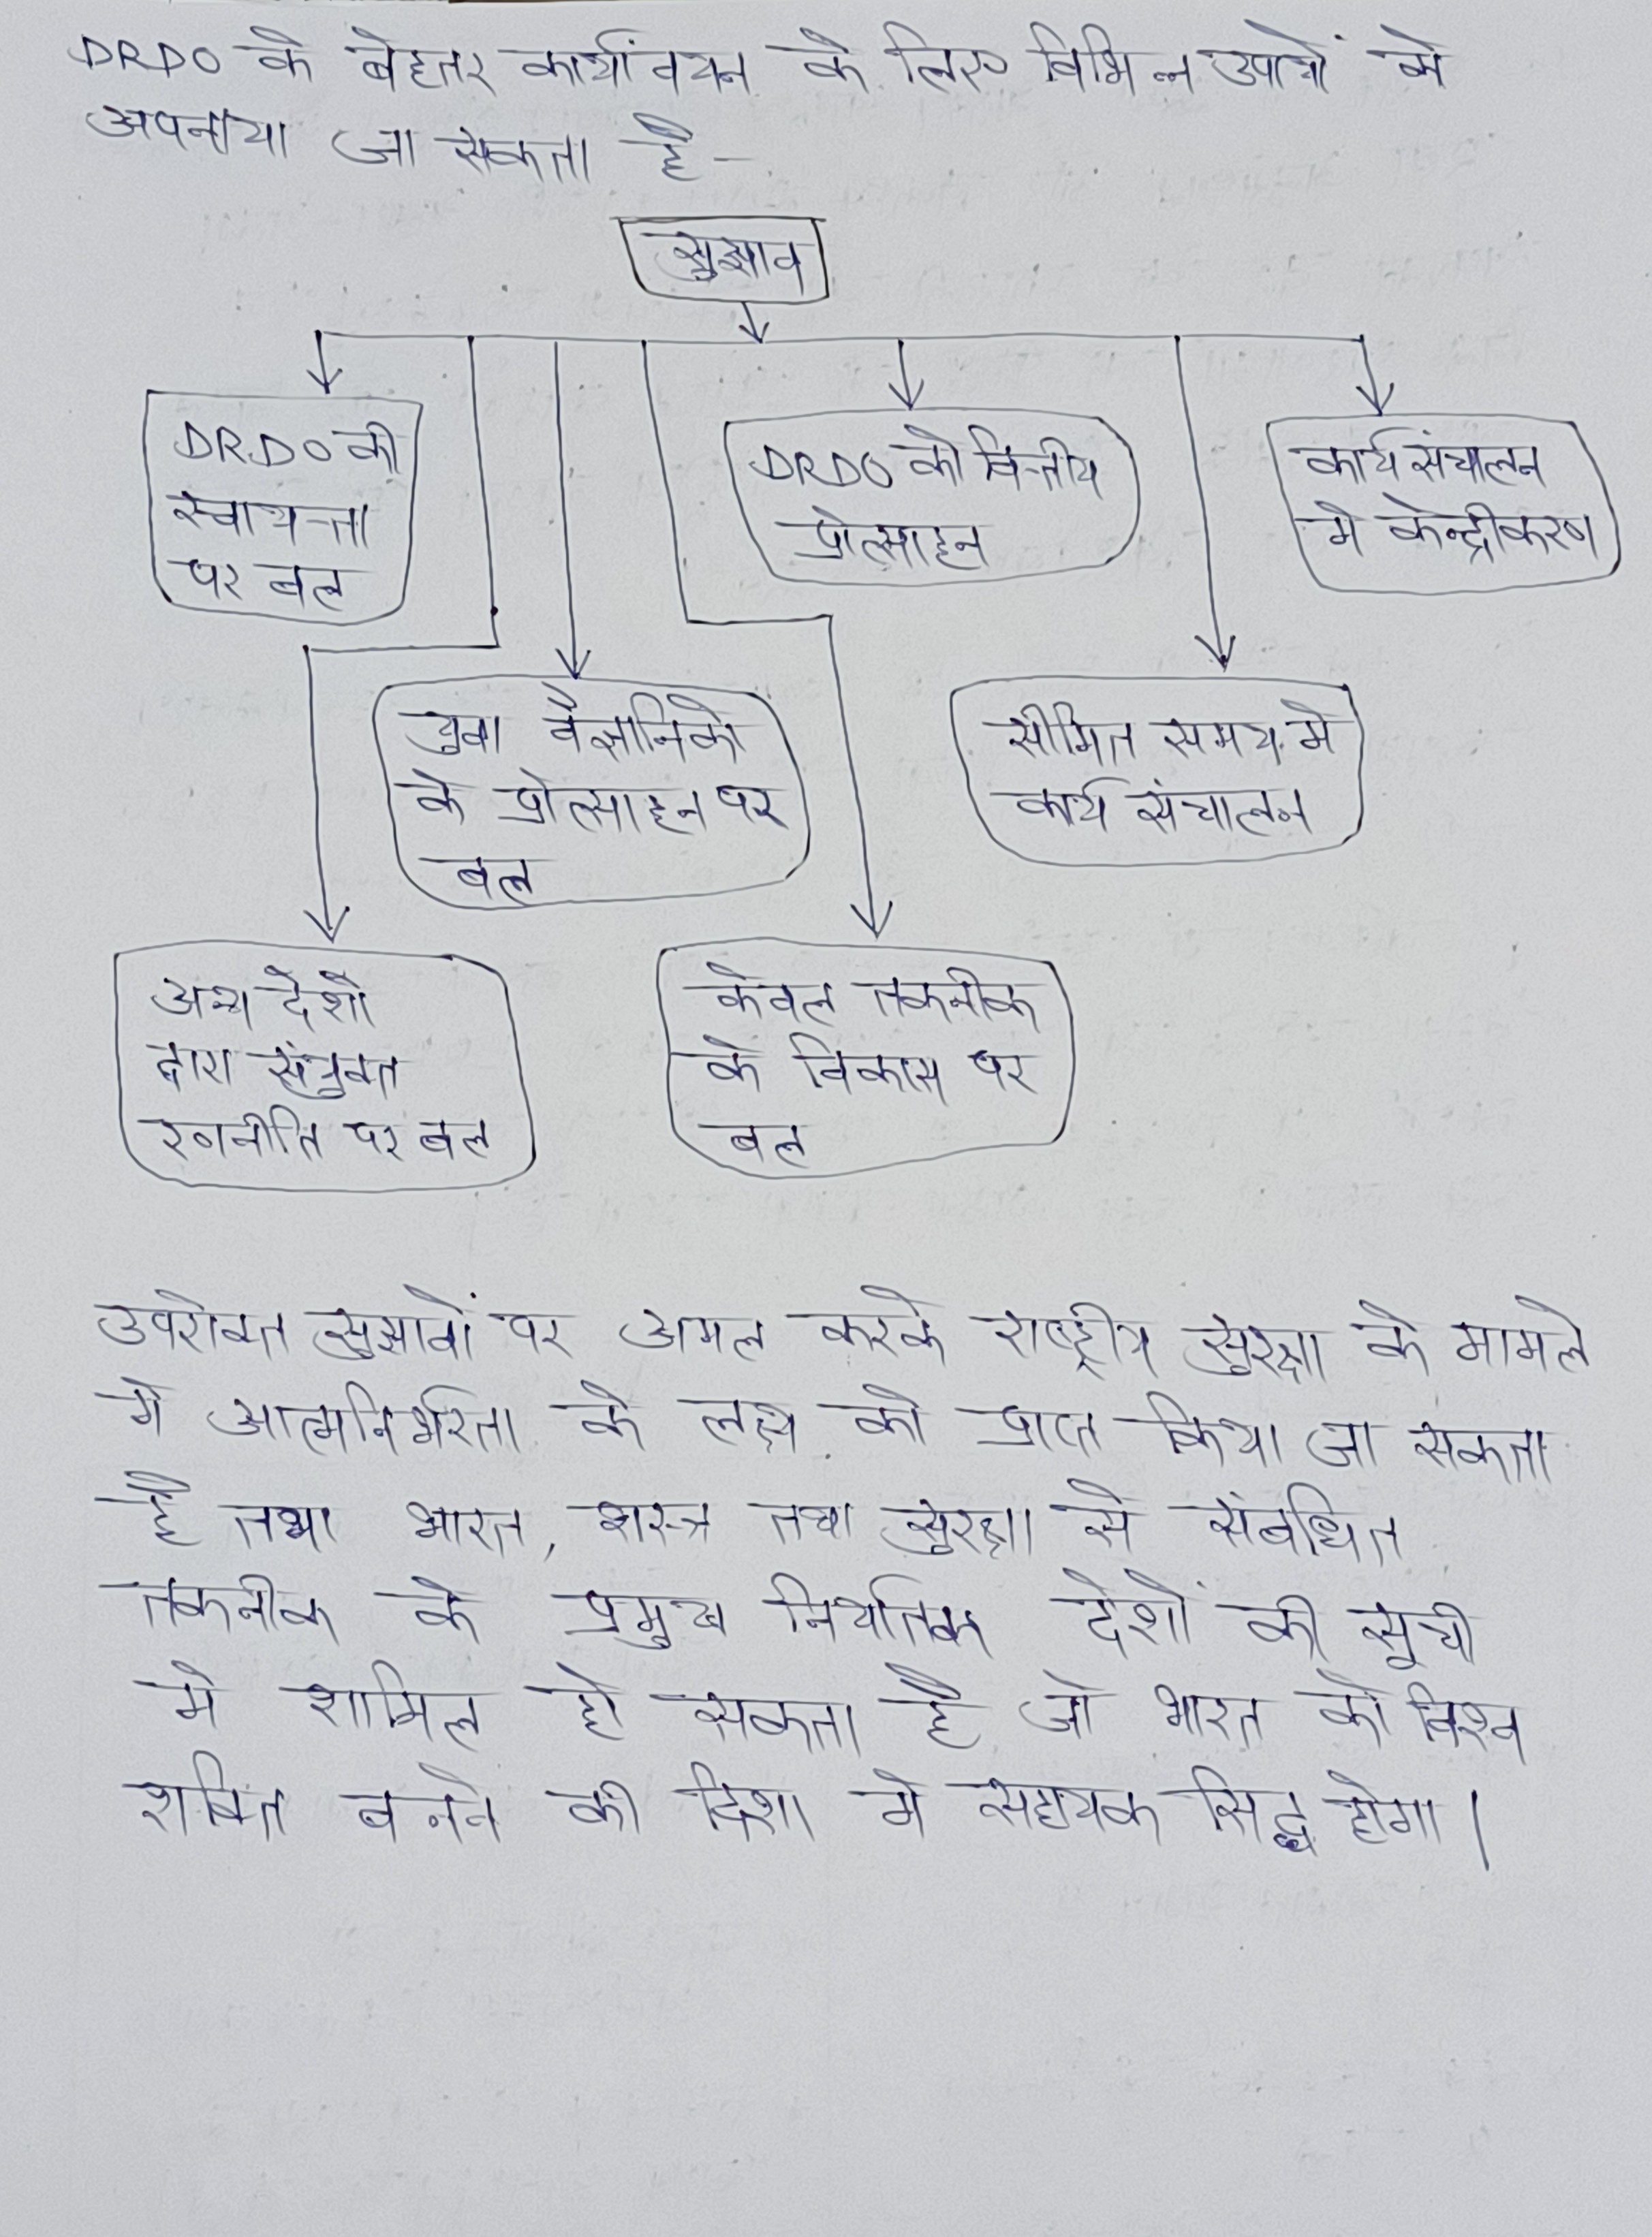 DRDO के बेहतर कार्यांवयन के लिए विभिन्न उपायों को
अपनाया जा सकता है -
सुझाव
DRDO की
स्वायत्ता
पर बल
DRDO को वित्तीय
प्रोत्साहन
कार्य संचालन
मे केन्द्रीकरण
युवा वैज्ञानिको
के प्रोत्साहन पर
बल
सीमित समय मे
कार्य संचालन
अन्य देशो
द्वारा संयुक्त
रणनीति पर बल
केवल तकनीक
के विकास पर
बल
उपरोक्त सुझावों पर अमल करके राष्ट्रीय सुरक्षा के मामले
मे आत्मनिर्भरता के लक्ष्य को प्राप्त किया जा सकता
है तथा भारत, शस्त्र तथा सुरक्षा से संबधित
तकनीक के प्रमुख निर्यातक देशों की सूची
मे शामिल हो सकता है जो भारत को विश्व
शक्ति बनने की दिशा मे सहायक सिद्ध होगा |